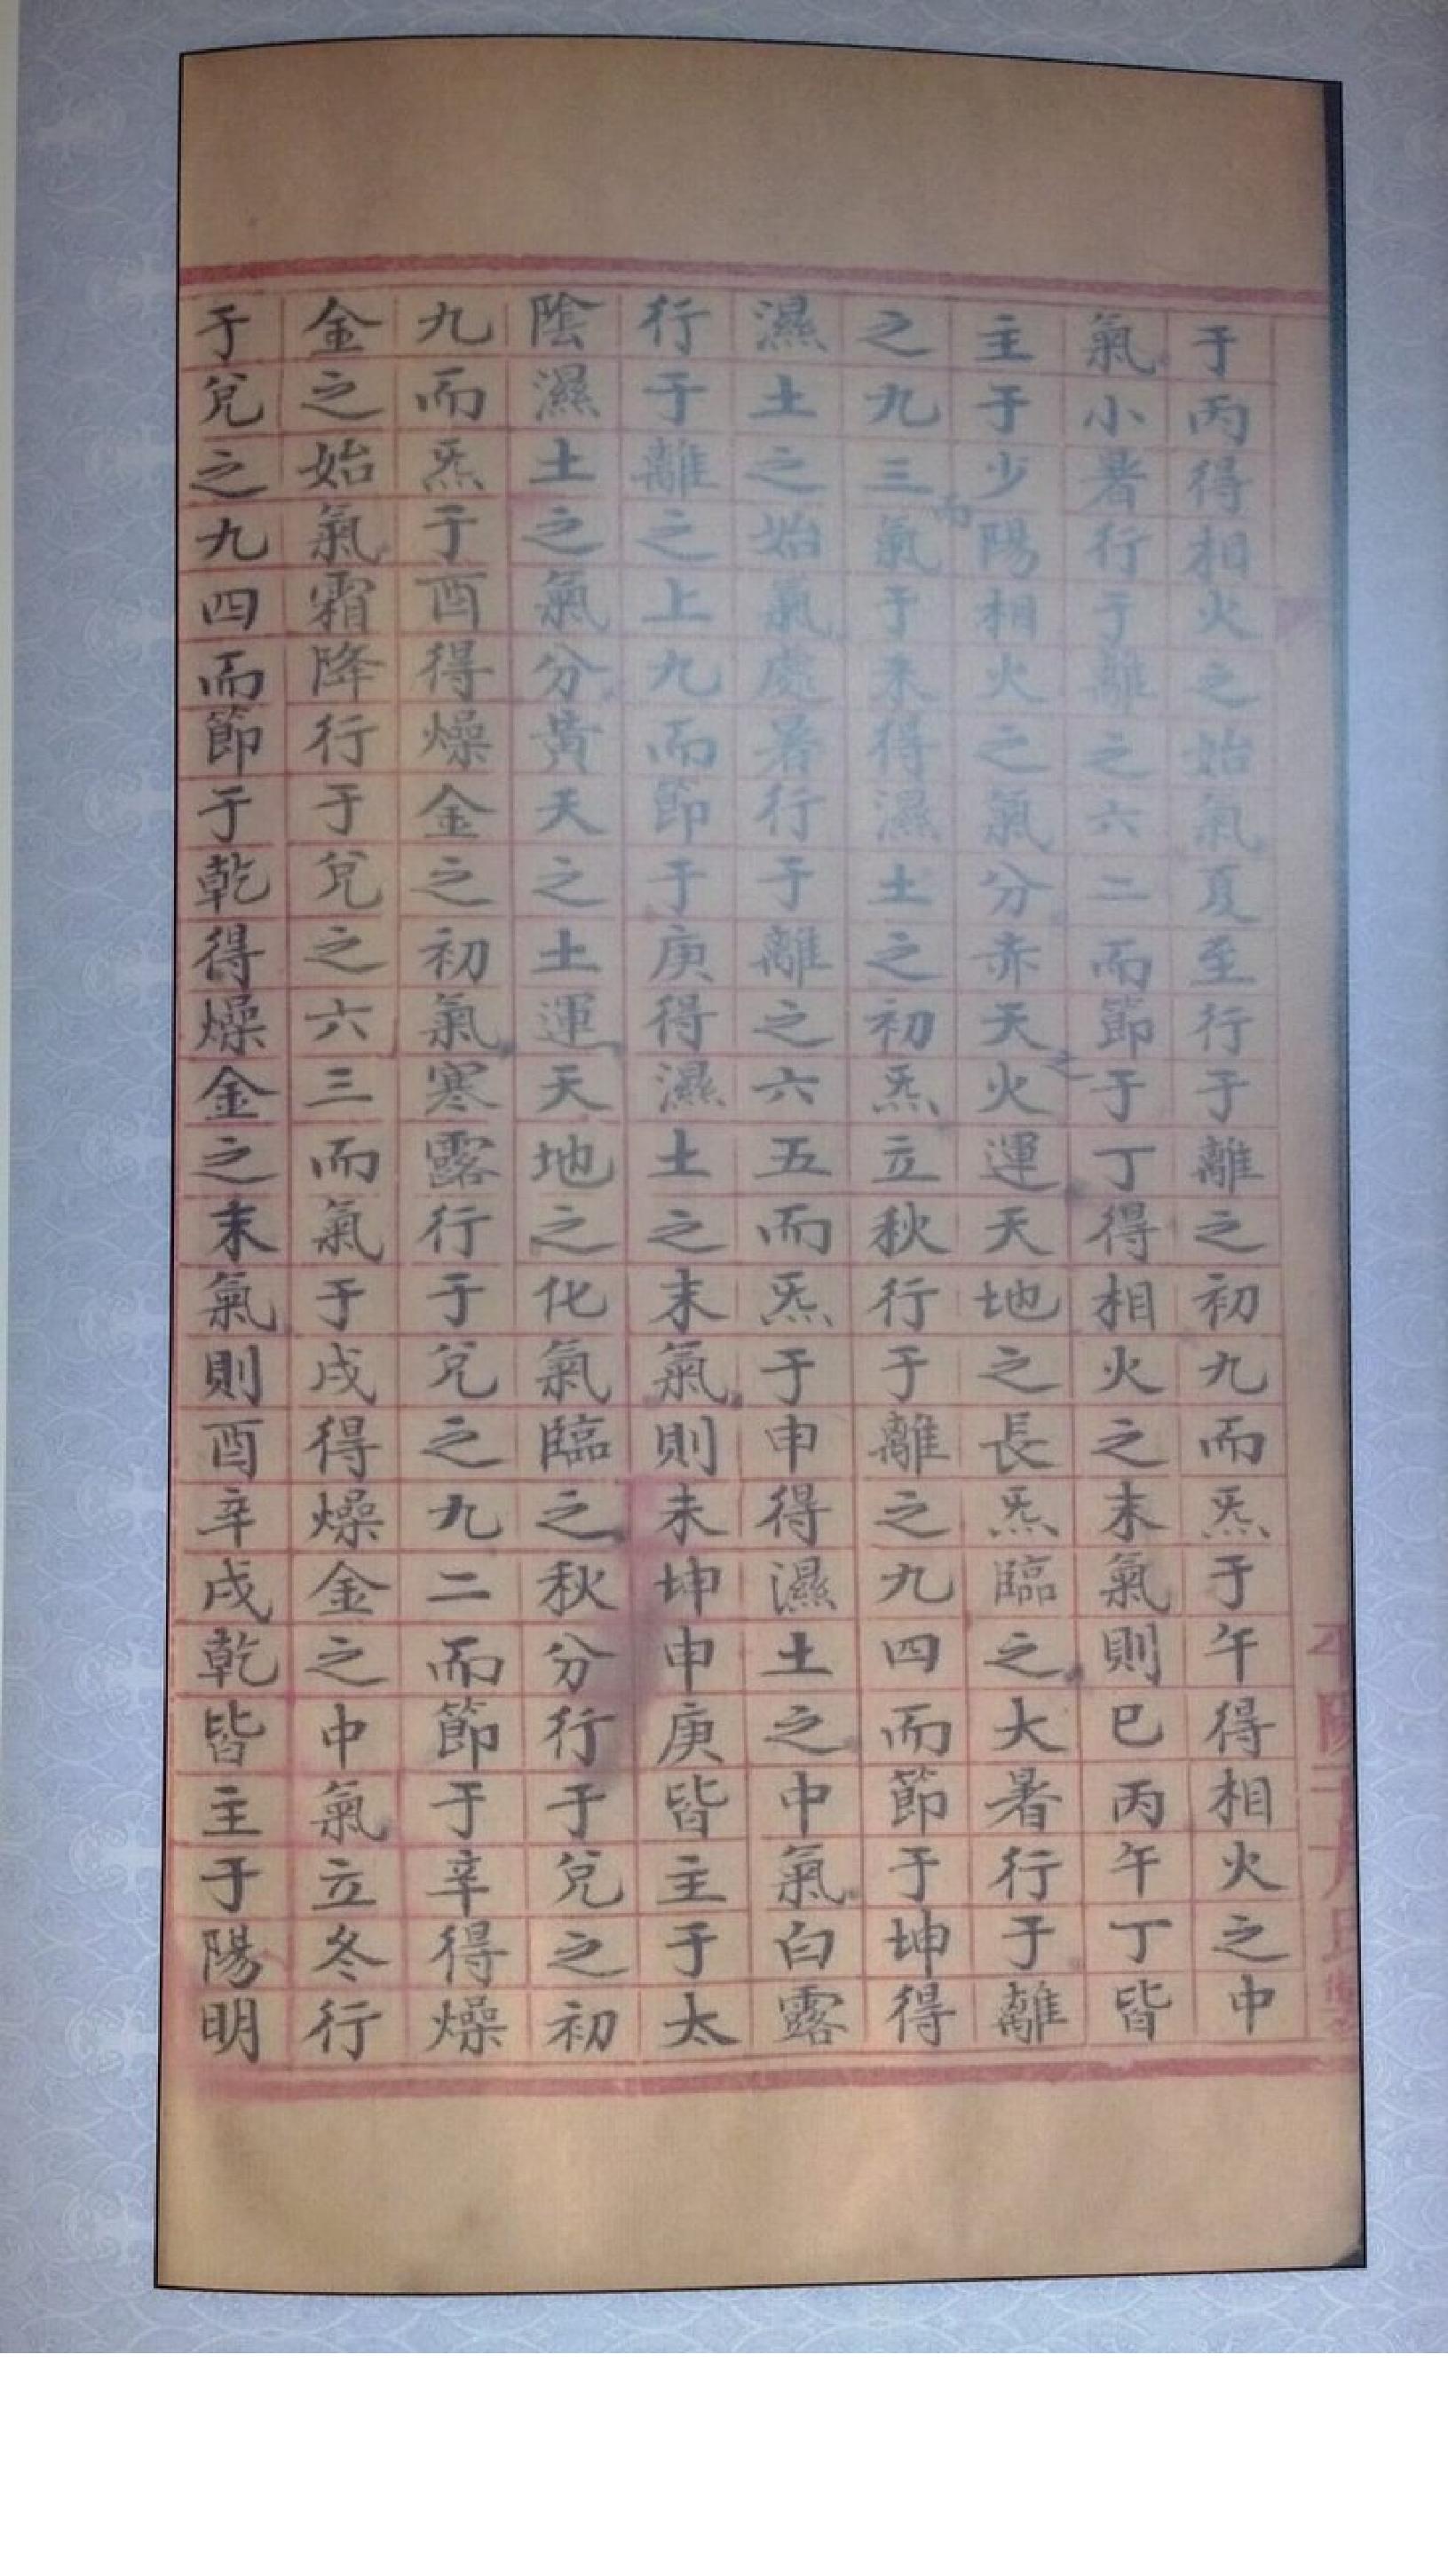 于丙得相火之始氣夏至行于離之初九而炁于午得相火之中
氣小暑行于離之六二而節于丁得相火之末氣則巳丙午丁皆
主于少陽相火之氣分赤天之火運天地之長炁臨之大暑行于離
之九三而氣于未得濕土之初炁立秋行于離之九四而節于坤得
濕土之始氣處暑行于離之六五而炁于申得濕土之中氣白露
行于離之上九而節于庚得濕土之末氣則未坤申庚皆主于太
陰濕土之氣分黃天之土運天地之化氣臨之秋分行于兌之初
九而炁于酉得燥金之初氣寒露行于兌之九二而節于辛得燥
金之始氣霜降行于兌之六三而氣于戌得燥金之中氣立冬行
于兌之九四而節于乾得燥金之末氣則酉辛戌乾皆主于陽明